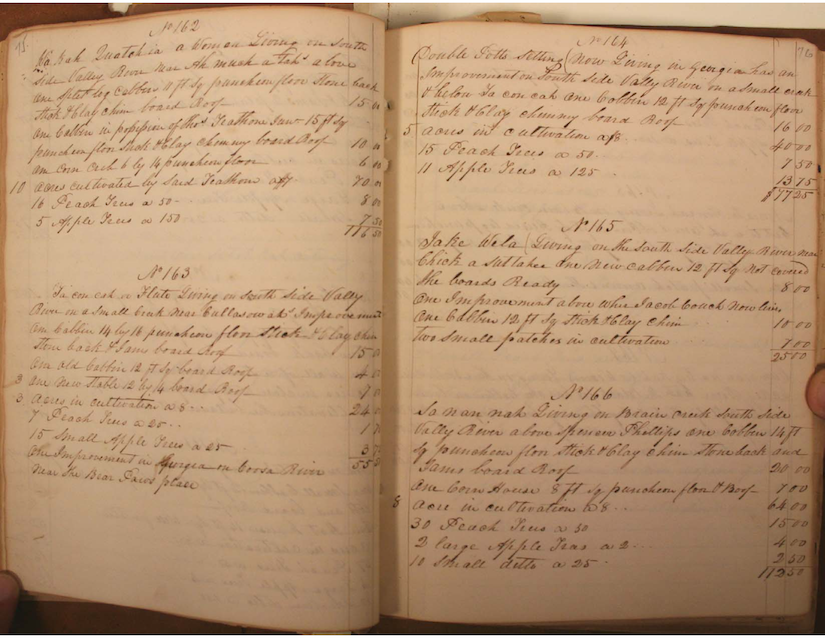 75
No 162
Ha nah Quatch ee a Woman Living on South
Side Valley River near Ah much a tah's above
one split log Cabbin 11 ft Sq puncheon floor Stone back
Stick & Clay Chim board Roof 15 00
one Cabbin in possession of Thos Teathone Junr 15 ft Sq
puncheon floor Stick & Clay Chimney board Roof 10 00
one Corn Crib 6 by 14 puncheon floor 6 00
10 acres cultivated by Said Teathone a $7 70 00
16 Peach Trees a 50 8 00
5 Apple Trees a 150 7 50
116 50
No 163
Ta con cah a Flute Living on South Side Valley
River on a Small Creek near Cullasowah's Improvement
one Cabbin 14 by 16 puncheon floor Stick & Clay Chim
Stone back & Jams board Roof 15 00
one old Cabbin 12 ft Sq board Roof 4 00
one new Stable 12 by 14 board Roof 7 0
3 acres in cultivation a 8 24 00
7 Peach Trees a 25 1 7
15 Small Apple Trees a 25 3 7
One Improvement in Georgia on Coosa River 55 5
near the Bear Paws place
76
No 164
Double Totts Sitting (Now Living in Georgia has an
Improvement on South Side Valley River on a Small creek
& below Ta con cah one Cabbin 12 ft Sq puncheon floor
Stick & Clay chimney board Roof 16 00
5 acres in cultivation a $8 40 00
15 Peach Trees a 50 7 50
11 Apple Trees a 125 13 75
$ 77 25
No 165
Jake Wela (Living on the South Side Valley River near
Chick a suttahee One New Cabbin 12 ft Sq not covered
the boards Ready 8 00
One Improvement above where Jacob Couch now lives
one Cabbin 12 ft Sq Stick & Clay Chim 10 00
two Small patches in cultivation 7 00
25 00
No 166
Sa nan nah Living on Brain creek South Side
Valley River above Spencer Phillips one Cabbin 14 ft
Sq puncheon floor Stick & Clay Chim Stone back and
Jams board Roof 20 00
One Corn House 8 ft Sq puncheon floor & Roof 7 00
8 acre in cultivation a 8 64 00
30 Peach Trees a 50 15 00
2 large Apple Trees a 2 4 00
10 Small ditto a 25 2 50
112 50